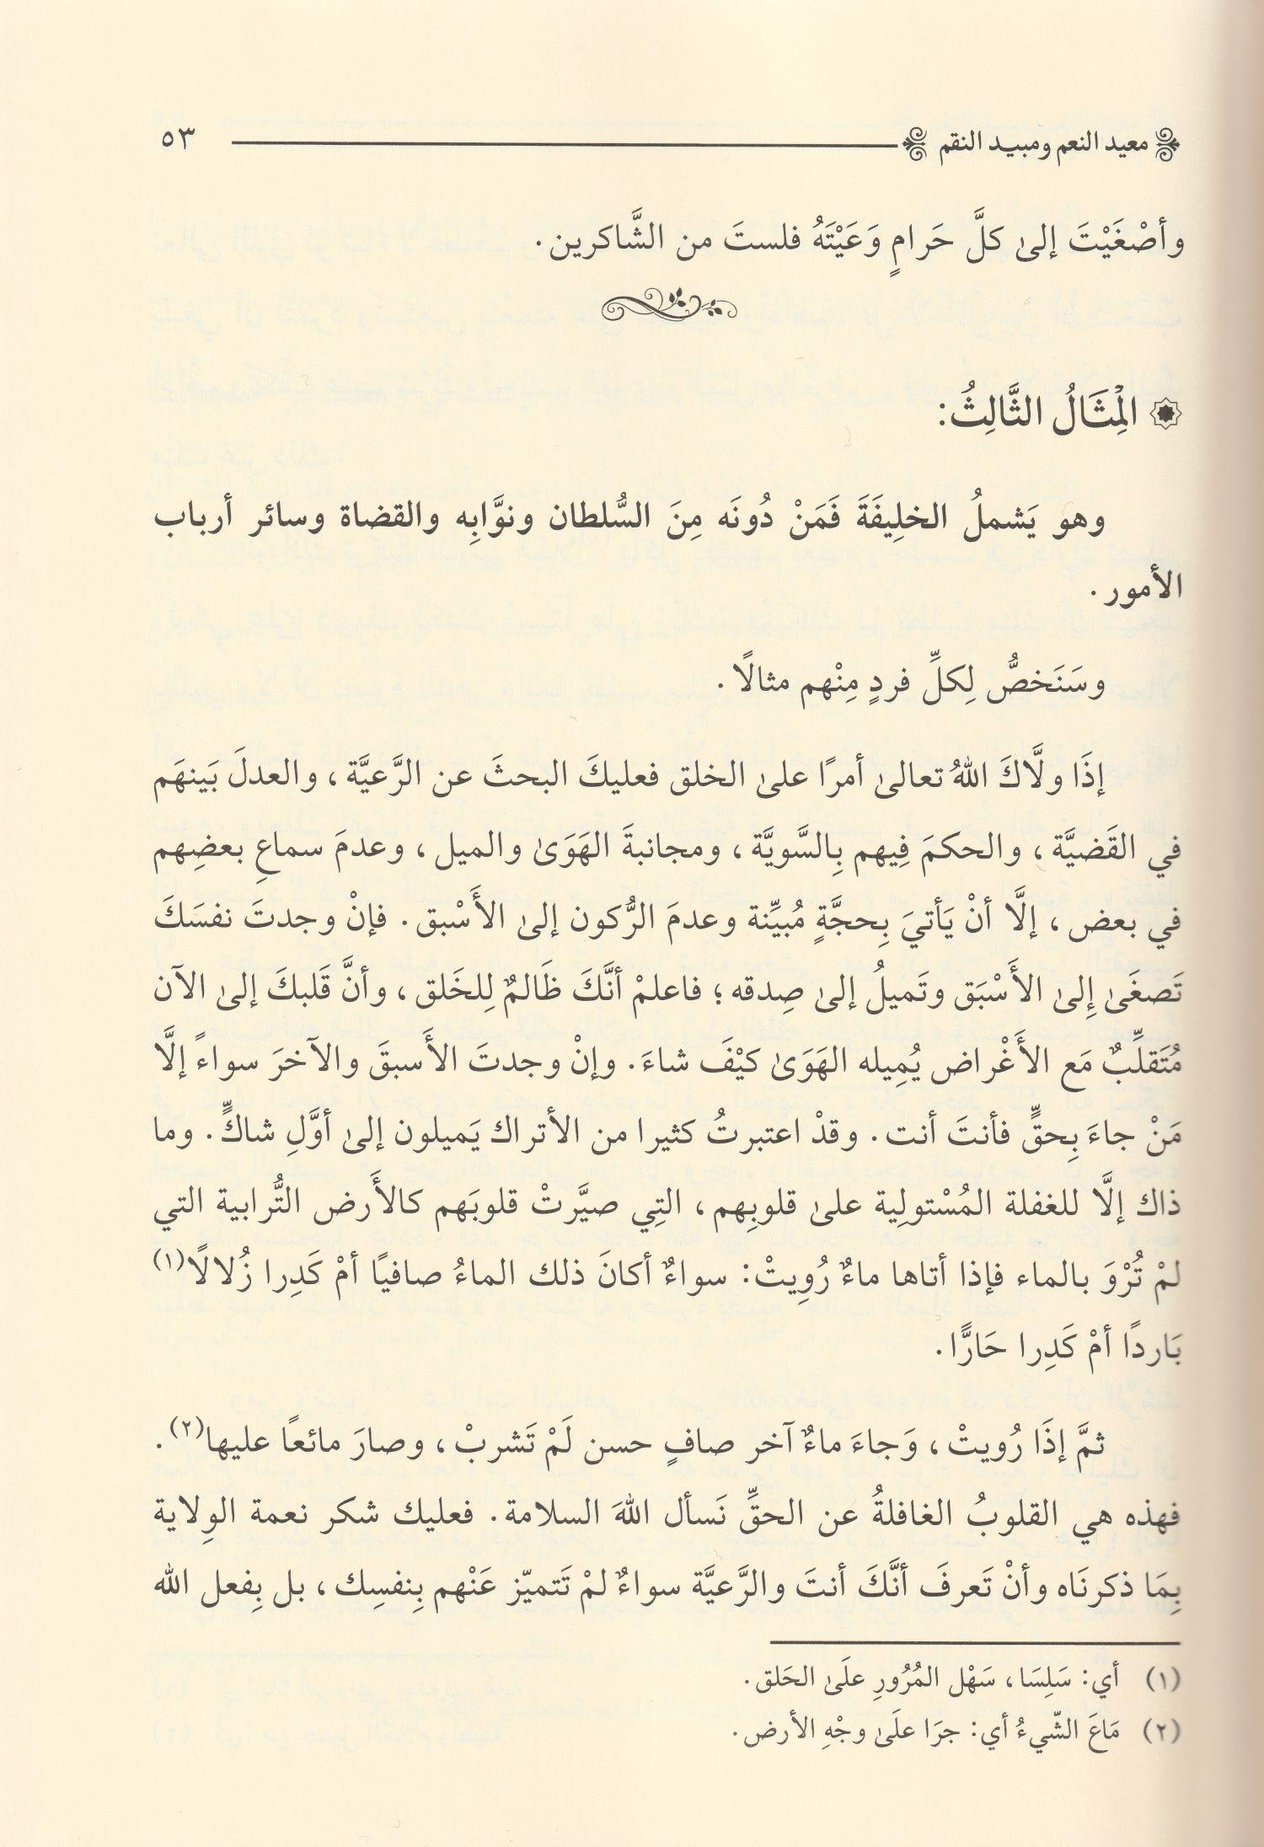 معيد النعم ومبيد النقم ٥٣
وأصْغَيْتَ إلىٰ كلَّ حَرامٍ وَعَيْتَهُ فلستَ من الشَّاكرين.
الْمِثَالُ الثَّالِثُ:
وهو يَشملُ الخلِيفَةَ فَمَنْ دُونَه مِنَ السُّلطان ونوَّابِه والقضاة وسائر أرباب
الأمور.
وسَنَخصُّ لِكلِّ فردٍ مِنْهم مثالًا.
إذَا ولَّاكَ اللهُ تعالىٰ أمرًا علىٰ الخلق فعليكَ البحثَ عن الرَّعيَّة، والعدلَ بَينهَم
في القَضيَّة، والحكمَ فِيهم بِالسَّويَّة، ومجانبةَ الهَوَىٰ والميل، وعدمَ سماعِ بعضِهم
في بعض، إلَّا أنْ يَأتيَ بِحجَّةٍ مُبيِّنة وعدمَ الرُّكون إلىٰ الأَسْبق. فإنْ وجدتَ نفسَكَ
تَصغَىٰ إِلىٰ الأَسْبَق وتَميلُ إلىٰ صِدقه؛ فاعلمْ أنَّكَ ظَالمٌ لِلخَلق، وأنَّ قَلبكَ إلىٰ الآن
مُتَقلِّبٌ مَع الأَغْراض يُمِيله الهَوَىٰ كيْفَ شاءَ. وإنْ وجدتَ الأَسبقَ والآخرَ سواءً إلَّا
مَنْ جاءَ بِحقٍّ فأنتَ أنت. وقدْ اعتبرتُ كثيرا من الأتراك يَميلون إلىٰ أوَّلِ شاكٍّ. وما
ذاك إلَّا للغفلة المُسْتولِية علىٰ قلوبِهم، التِي صيَّرتْ قلوبَهم كالأَرض التُّرابية التي
لمْ تُرْوَ بالماء فإذا أتاها ماءٌ رُوِيتْ: سواءٌ أكانَ ذلك الماءُ صافيًا أمْ كَدِرا زُلالًا(١)
بَاردًا أمْ كَدِرا حَارًّا.
ثمَّ إذَا رُويتْ، وَجاءَ ماءٌ آخر صافٍ حسن لَمْ تَشربْ، وصارَ مائعًا عليها(٢).
فهذه هي القلوبُ الغافلةُ عن الحقِّ نَسأل اللهَ السلامة. فعليك شكر نعمة الوِلاية
بِمَا ذكرنَاه وأنْ تَعرفَ أنَّكَ أنتَ والرَّعيَّة سواءٌ لمْ تَتميّز عَنْهم بِنفسِك، بل بِفعل الله
(١) أي: سَلِسَا، سَهْل المُرُورِ علَىٰ الحَلق.
(٢) مَاعَ الشّيءُ أي: جرَا علَىٰ وجْهِ الأرض.